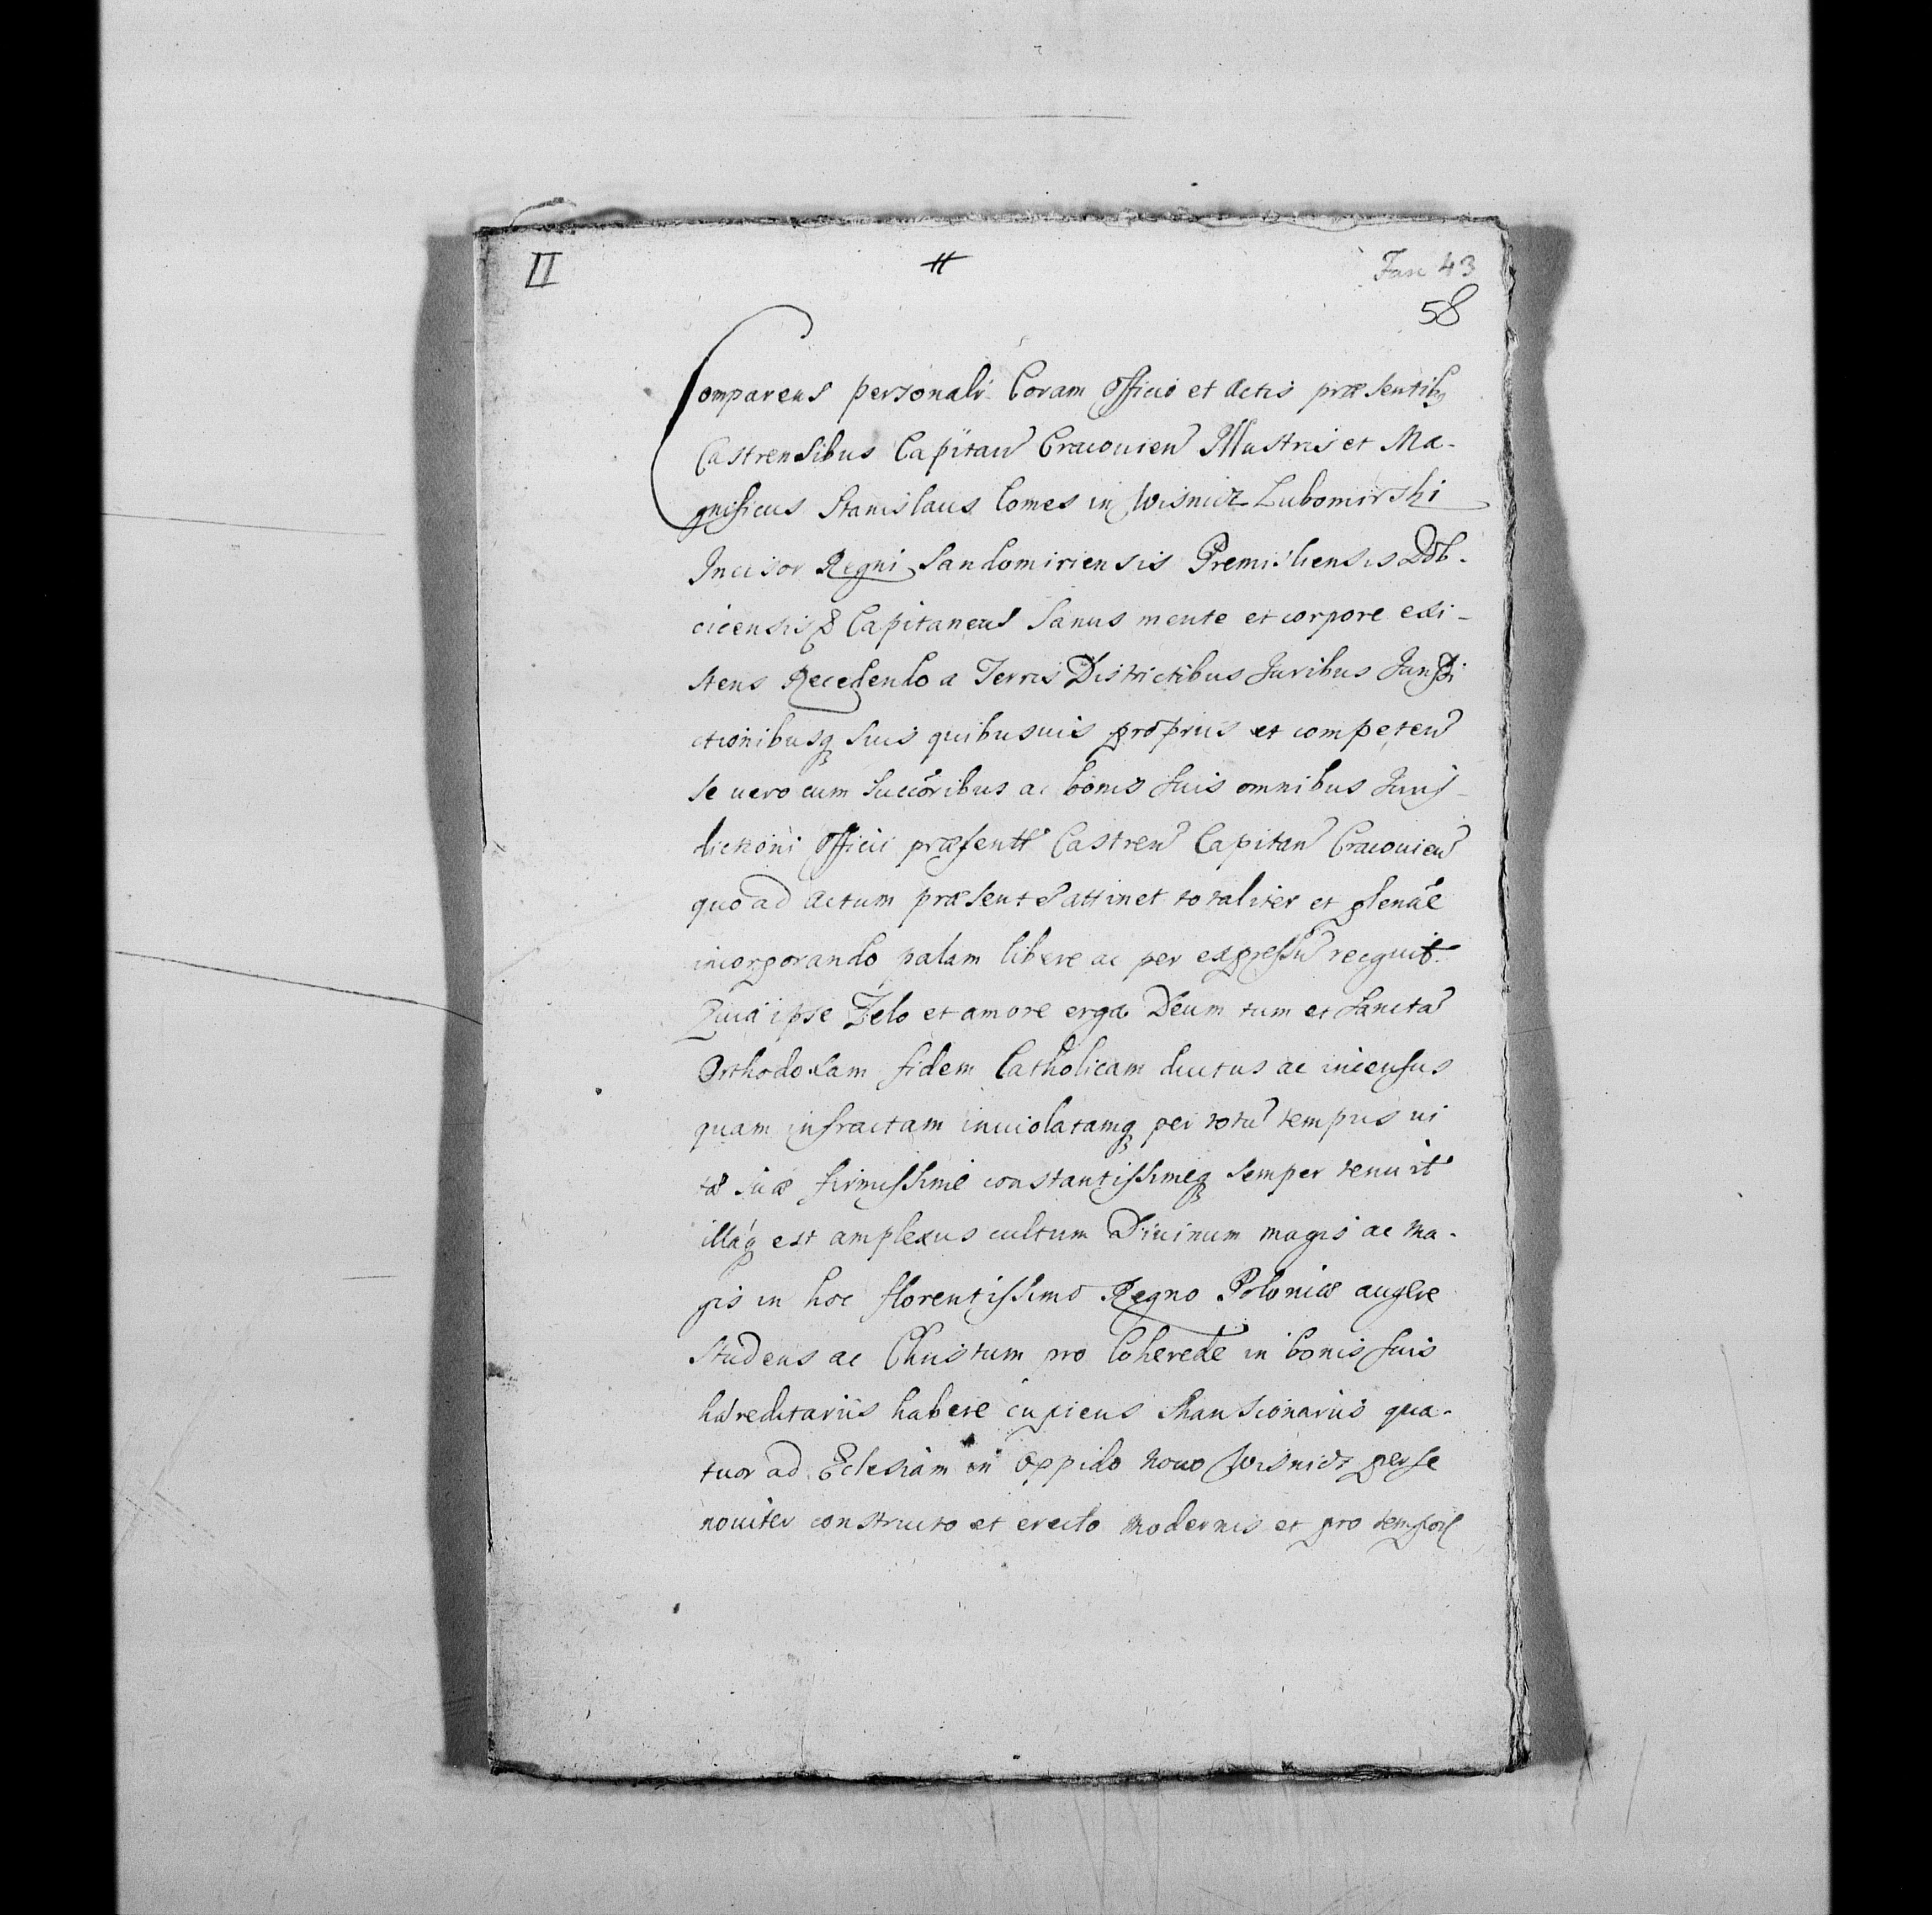 II
Fasc 43
58
Comparens personalr Coram Officio et Actis præsentibq
Castrensibus Capitan Cracovien Illustris et Ma-
gnificus Stanislaus Comes in Wisnicz Lubomirski
Incisor Regni Sandomiriensis Premisliensis Dob-
cicensis & Capitaneus Sanus mente et corpore exi-
stens Recedendo a Terris Districtibus Juribus Jurisdi
ctionibusq suis quibusuis proprus et competen
se uero cum succoribus ac bonis suis omnibus Juris-
dictioni Officii præsentt Castren Capitan Cracouien
quo ad actum præsente attinet totaliter et plenaê
incorporando palam libere ac per expressu recgnit.
Quia ipse Zelo et amore erga Deum tum et sancta
Orthodoxam fidem Catholicam ductus ac incensus
quam infractam inuiolatamq per totu tempus ui
tæ suæ firmissime constantissimeq semper tenuit
illaq est amplexus cultum Diuinum magis ac ma-
gis in hoc florentissimo Regno Poloniæ augere
studens ac Christum pro Coherede in bonis suis
hæreditariis habere cupiens Mansionariis qua-
tuor ad Eclesiam in Oppido Nouo Wisnicz per se
nouiter constructo et erecto modernis et pro tempore